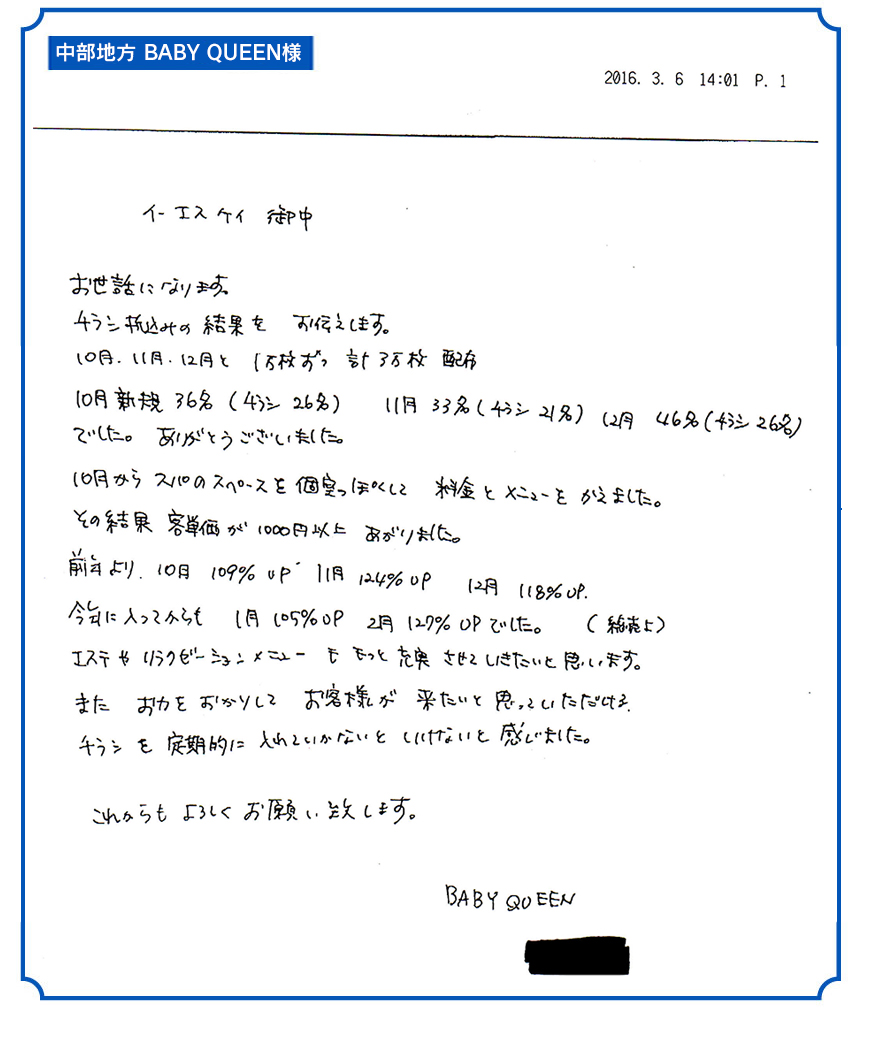 中部地方 BABY QUEEN様
2016. 3. 6 14:01 P. 1
イーエスケイ 御中
お世話になります。
チラシ折込みの結果を お伝えします。
10月・11月・12月と 1万枚ずつ 計3万枚 配布
10月新規 36名(チラシ 26名) 11月 33名(チラシ 21名) 12月 46名(チラシ 26名)
でした。ありがとうございました。
10月から スパのスペースを 個室っぽくして 料金とメニューを かえました。
その結果 客単価が 1000円以上 あがりました。
前年より、10月 109% UP 11月 124% UP 12月 118% UP.
今年に入ってからも 1月 105% UP 2月 127% UPでした。 (総売上)
エステや リラクゼーションメニューも もっと充実させていきたいと思います。
また お力をおかりして お客様が 来たいと思っていただける、
チラシを 定期的に 入れていかないと いけないと感じました。
これからも よろしくお願い致します。
BABY QUEEN